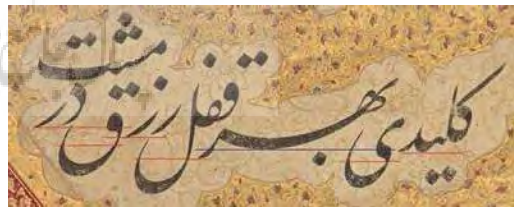 کلیدی بهر قفل رزق در مشت